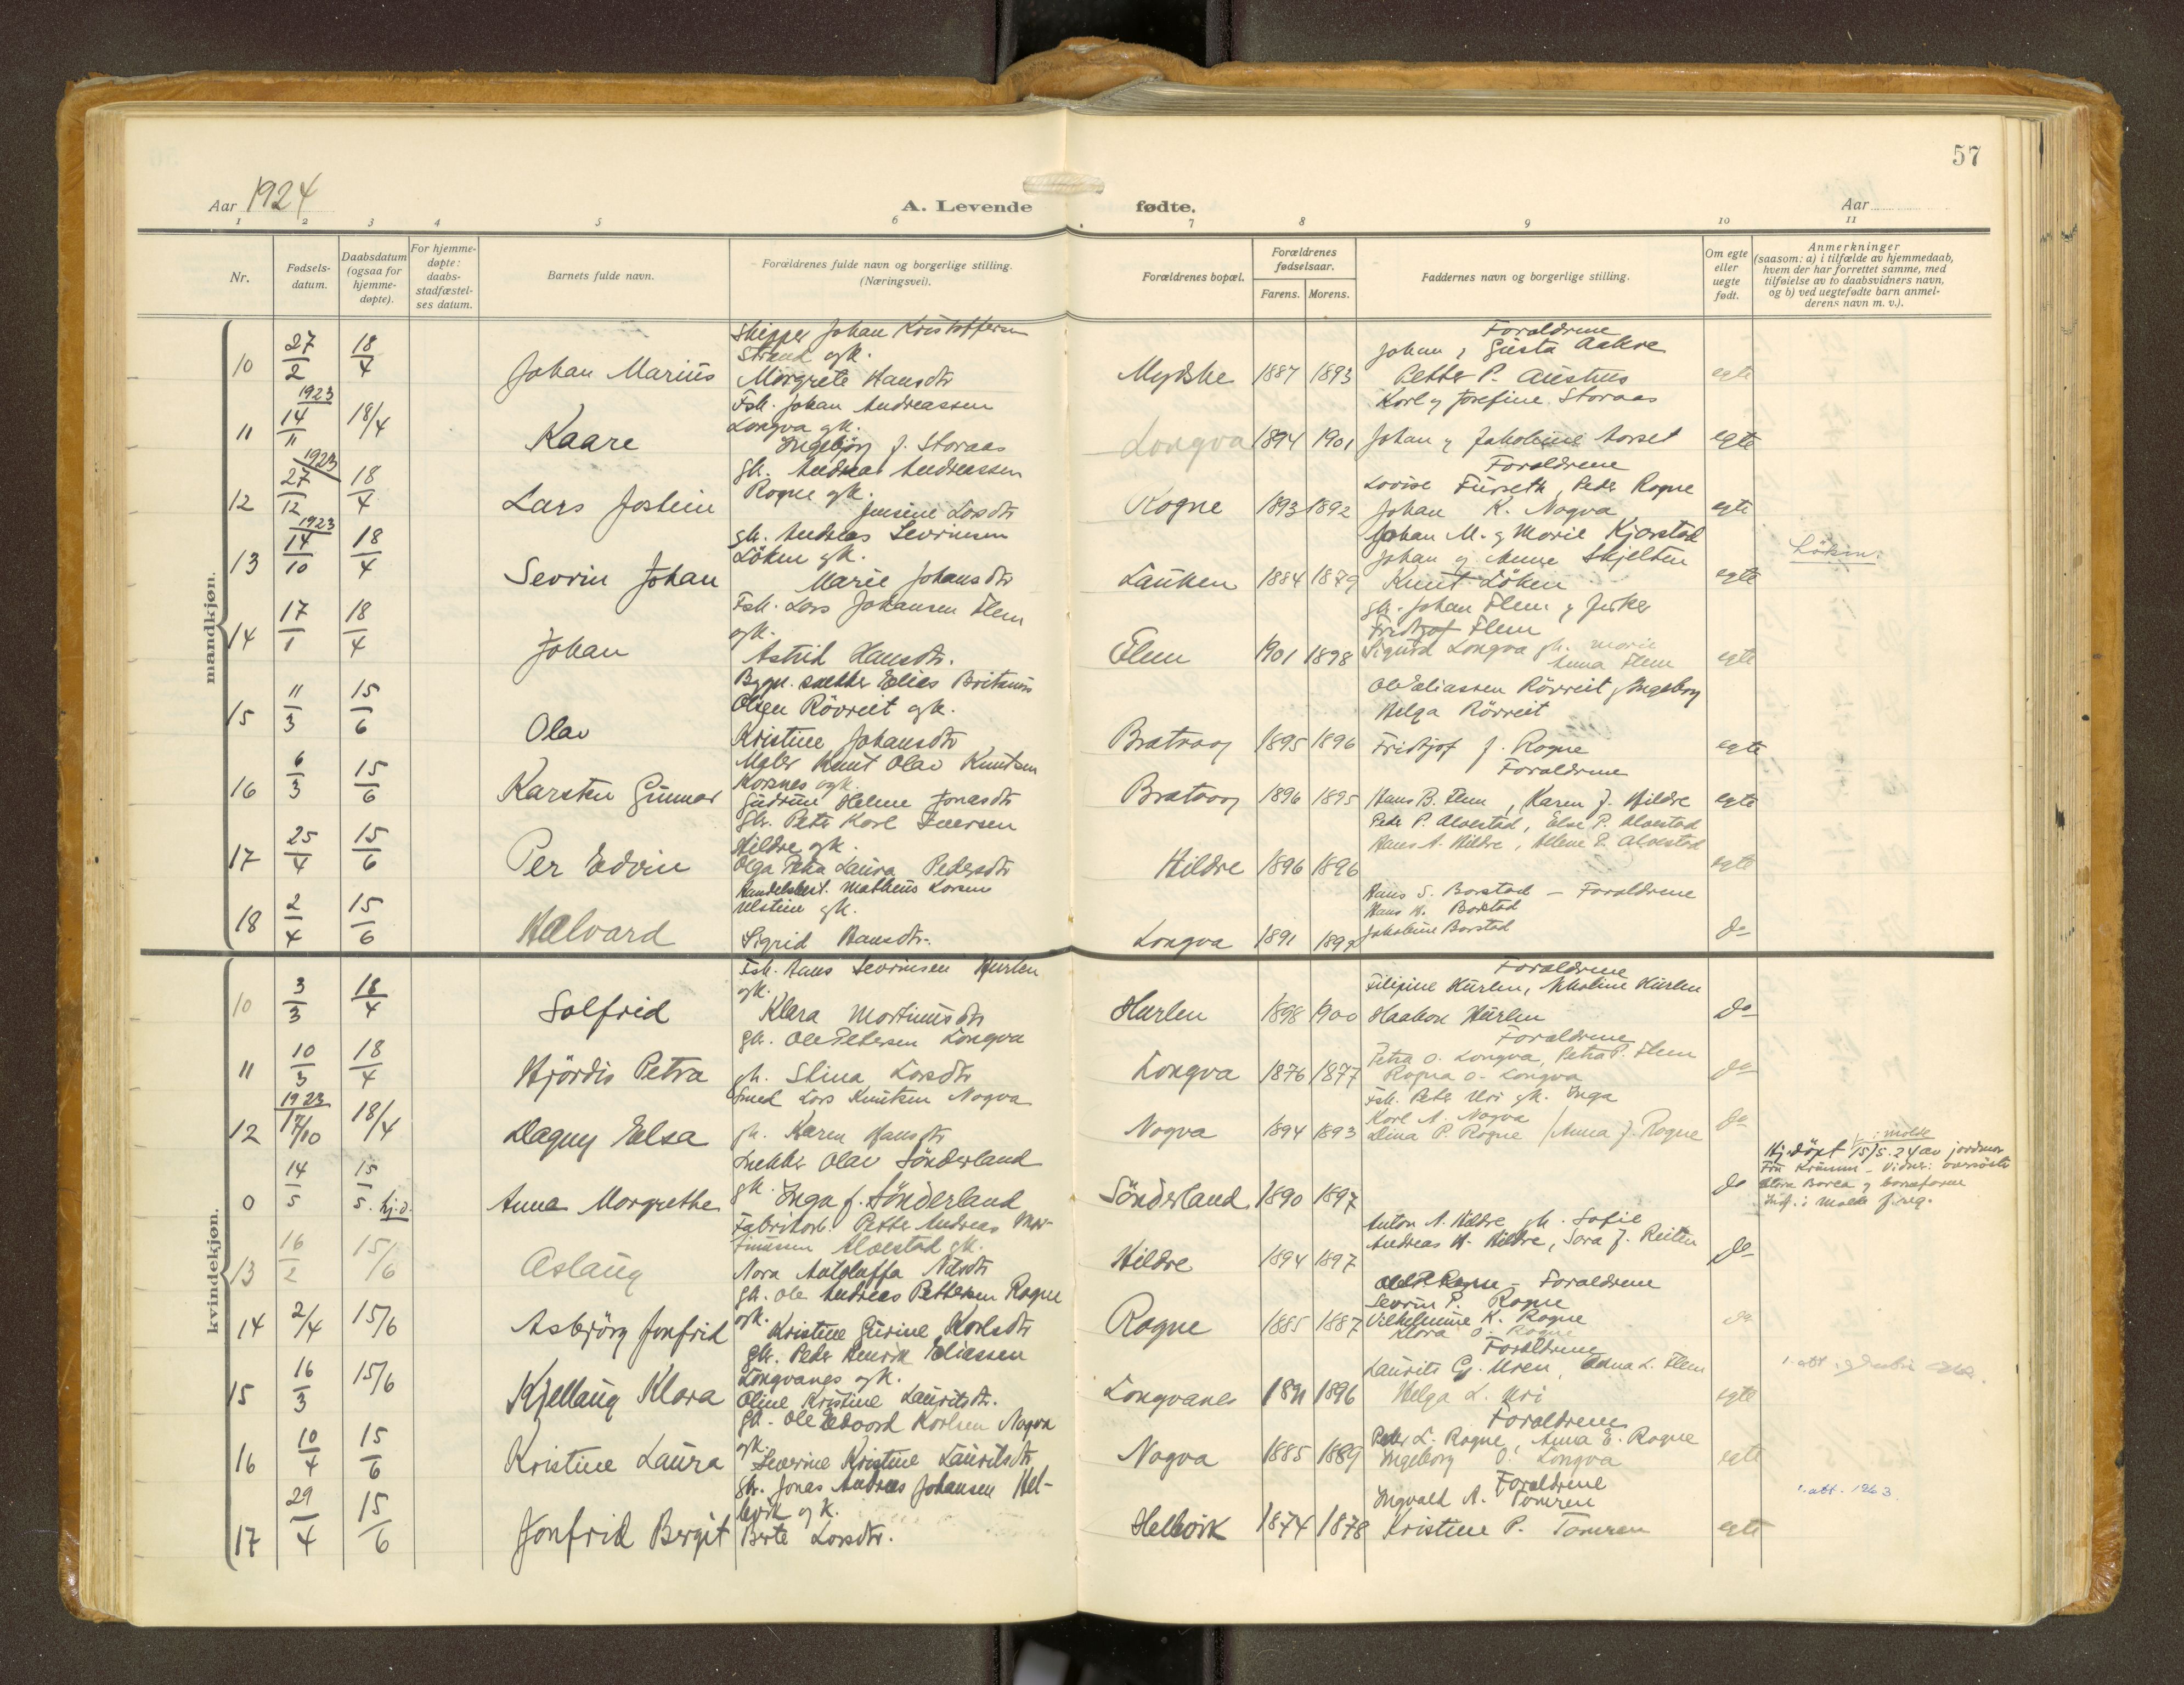 57
Aar 1924
A. Levende fødte.
Aar
1 2 3 4 5 6 7 8 9 10 11
Nr.
Fødsels-
datum.
Daabsdatum
(ogsaa for
hjemme-
døpte).
For hjemme-
døpte:
daabs-
stadfæstel-
ses datum.
Barnets fulde navn.
Forældrenes fulde navn og borgerlige stilling.
(Næringsvei).
Forældrenes bopæl.
Forældrenes
fødselsaar.
Farens. Morens.
Faddernes navn og borgerlige stilling.
Om egte
eller
uegte
født.
Anmerkninger
(saasom: a) i tilfælde av hjemmedaab,
hvem der har forrettet samme, med
tilføielse av to daabsvidners navn,
og b) ved uegtefødte barn anmel-
derens navn m. v.).
mandkjøn.
10 27/2 18/4 Johan Marius
Skipper Johan Kristoffersen
Strand gk.
Margrete Hansdtr
Mydske 1887 1893
Foraldrene
Johan & Gusta Aakre
Petter P. Austnes
Karl og Josefine Storaas
egte
11 1923 14/11 18/4 Kaare
Fsk. Johan Andreassen
Longva gk.
Ingebjörg f. Storaas
Longva 1894 1901
Johan & Jakobine Aarset
egte
12 1923 27/12 18/4 Lars Jostein
gb. Andreas Andreassen
Rogne gk.
Jensine Larsdtr
Rogne 1893 1892
Foraldrene
Lovise Furseth, Peder Rogne
Johan K. Nogva
egte
13 1923 14/10 18/4 Sevrin Johan
gb. Andreas Sevrinsen
Löken gk.
Marie Johansdtr
Lauken 1884 1879
Johan M. & Marie Kjærstad
Johan og Anne Skjelten
Knut Löken
egte
Löken.
14 17/1 18/4 Johan
Fsk. Lars Johansen Flem
gk.
Astrid Hansdtr.
Flem 1901 1898
gb. Johan Flem &
Fridtjof Flem
Sigurd Longva gk. Marie
Anna Flem
egte
15 11/3 15/6 Olav
Elias
Olsen Rövreit gk.
Kristine Johansdtr
Bratvaag 1895 1896
Ole Eliassen Rövreit, Ingeborg
Helga Rövreit
Fridtjof J. Rogne
egte
16 6/3 15/6 Karsten Gunnar
Maler Knut Olav Knutsen
Korsnes gk.
Gudrun Helene Jonasdtr
Bratvaag 1896 1895
Foraldrene
Hans B. Flem, Karen J. Hildre
egte
17 25/4 15/6 Per Edvin
gbr. Peter Karl Iversen
Hildre gk.
Olga Petra Laura Pedersdtr
Hildre 1896 1896
Peder P. Alvestad, Else P. Alvestad
Hans A. Hildre, Helene E. Alvestad
egte
18 2/4 15/6 Halvard
Handelsbest. Mathias Larsen
Ulstein gk.
Sigrid Hansdtr.
Longva 1891 1897
Hans S. Barstad - Foraldrene
Hans H. Barstad
Jakobine Barstad
do
kvindekjøn.
10 3/3 18/4 Solfrid
Fsk. Hans Sevrinsen Hurlen
gk.
Klara Martinusdtr
Hurlen 1898 1900
Foraldrene
Filipine Hurlen, Nikoline Hurlen
Haakon Hurlen
do
11 10/3 18/4 Hjördis Petra
gb. Ole Petersen Longva
gk. Stina Larsdtr
Longva 1876 1877
Foraldrene
Petra O. Longva, Petra P. Flem
Ragna O. Longva
do
12 1923 17/10 18/4 Dagny Elsa
Smed Lars Knutsen Nogva
gk. Karen Hansdtr
Nogva 1894 1893
Fsk. Peter Uri gk. Inga
Karl A. Nogva
Dina P. Rogne / Anna J. Rogne
do
0 14/5 15/5. hj.d. Anna Margrethe
Snekker Olav Sönderland
gk. Inga f. Sönderland
Sönderland 1890 1897
do
: Molde
Hj. döpt 15/5. 24 av jordmor
Fru
Indf. i Molde f.reg.
13 16/2 15/6 Aslaug
Fabrikarb. Petter Andreas Mar-
tinussen Alvestad gk.
Nora Nilsdtr
Hildre 1894 1897
Anton A. Hildre gk. Sofie
Andreas H. Hildre, Sara J. Reiten
do
14 2/4 15/6 Asbjörg Jonfrid
gb. Ole Andreas Pettersen Rogne
gk.
Kristine Gurine Karlsdtr
Rogne 1885 1887
Rogne - Foraldrene
Sevrin P. Rogne
Vilhelmine K. Rogne
Klara O. Rogne
do
15 16/3 15/6 Kjellaug Klara
gbr. Peder Henrik Eliassen
Longvanes gk.
Oline Kristine Lauritsdtr.
Longvanes 1891 1896
Foraldrene
Laurits Uren, Edna L. Flem
Helga L. Uri
egte
16 10/4 15/6 Kristine Laura
gb. Ole Edvard Karlsen Nogva
gk.
Severine Kristine Lauritsdtr
Nogva 1885 1889
Foraldrene
Peder L. Rogne, Anna E. Rogne
Ingeborg O. Longva
egte
17 29/4 15/6 Jonfrid Bergit
gbr. Jonas Andreas Johansen Hel-
levik gk.
Berte Larsdtr.
Hellevik 1874 1878
Foraldrene
Ingvald A. Tomren
Kristine P. Tomren
egte
1. att. 1963.